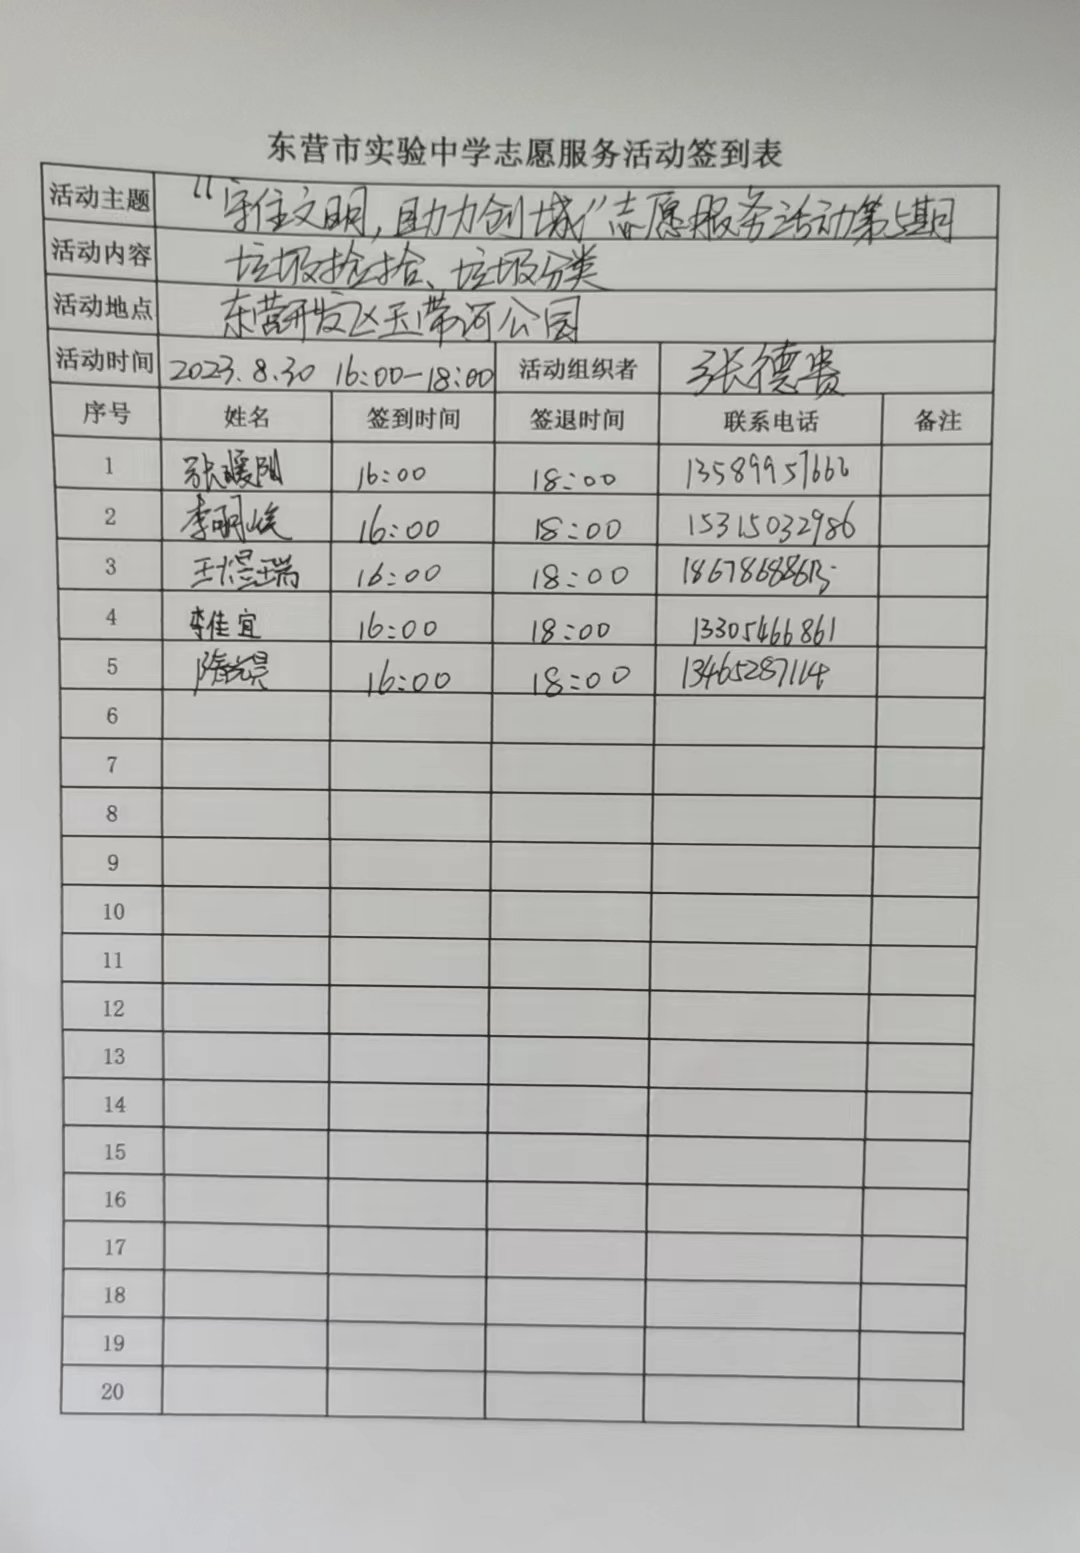 东营市实验中学志愿服务活动签到表
活动主题 “守住文明,助力创城”志愿服务活动第5期
活动内容 垃圾捡拾、垃圾分类
活动地点 东营开发区玉带河公园
活动时间 2023.8.30 16:00-18:00 活动组织者 张德贵
序号 姓名 签到时间 签退时间 联系电话 备注
1 张暖阳 16:00 18:00 13589957660
2 李明 16:00 18:00 15315032986
3 王煜瑞 16:00 18:00
4 李佳宜 16:00 18:00 13305466861
5 隋 昊 16:00 18:00 13465287114
6
7
8
9
10
11
12
13
14
15
16
17
18
19
20